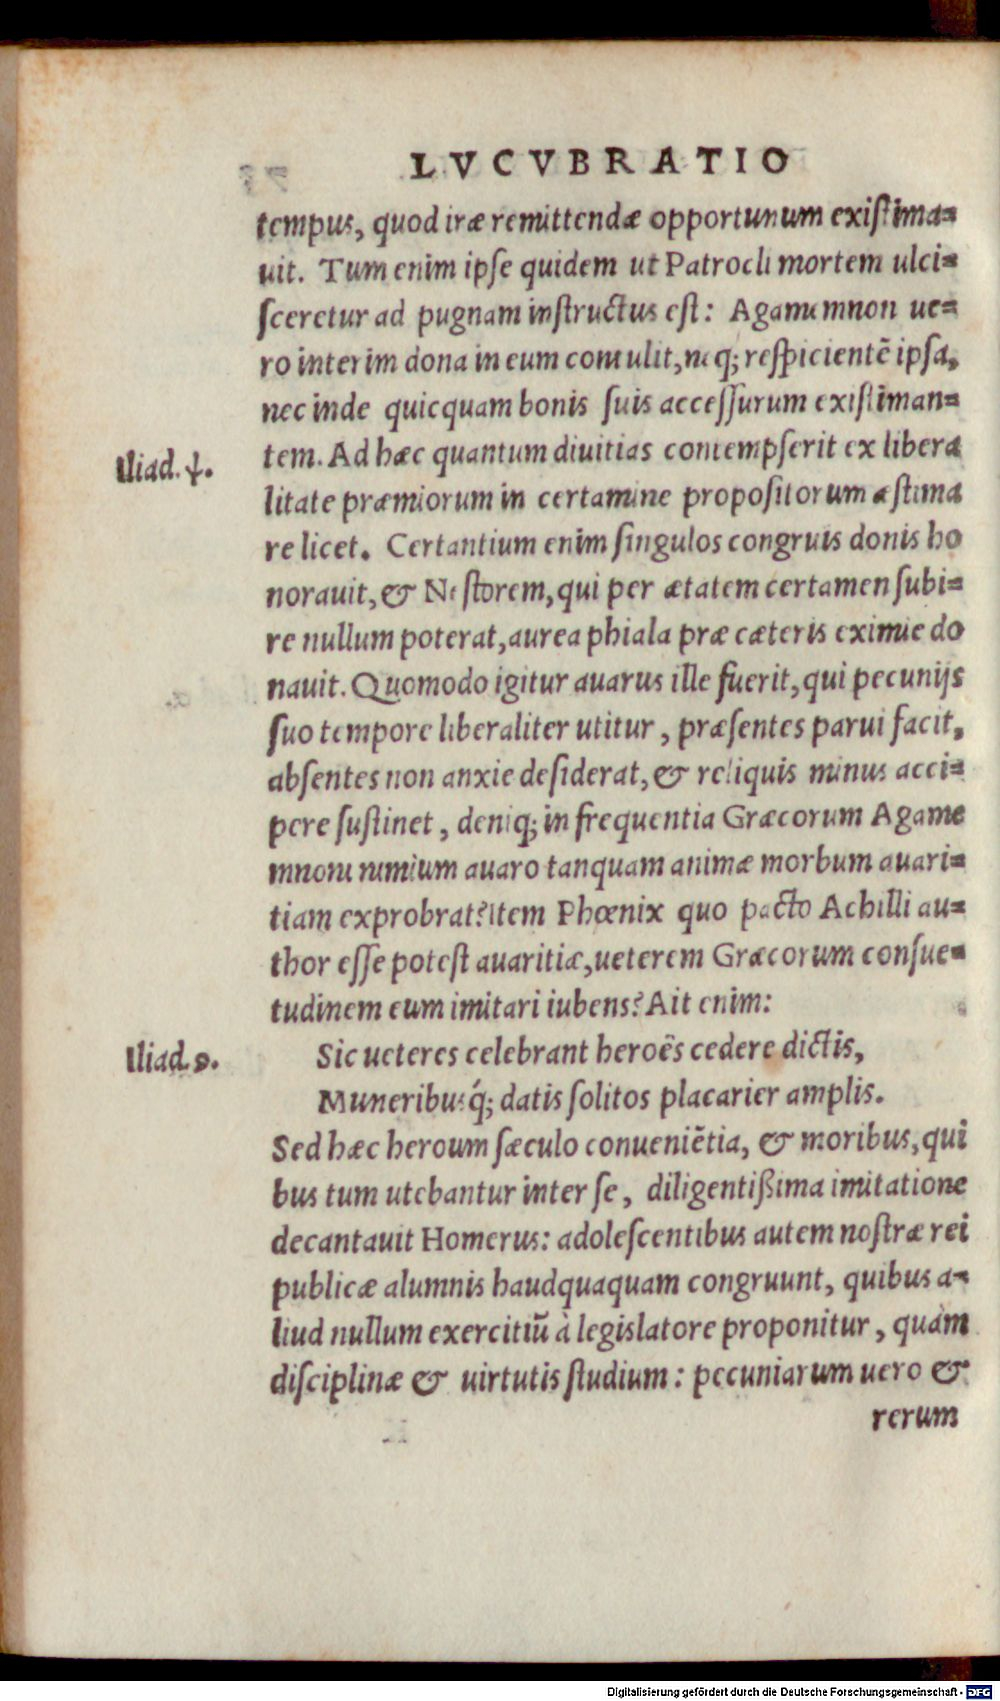 LVCVBRATIO
tempus, quod iræ remittendæ opportunum existima=
uit. Tum enim ipse quidem ut Patrocli mortem ulci=
sceretur ad pugnam instructus est: Agamemnon ue=
ro interim dona in eum contulit, neq; respicientē ipsa,
nec inde quicquam bonis suis accessurum existiman=
tem. Ad hæc quantum diuitias contempserit ex libera
Iliad. ψ.
litate præmiorum in certamine propositorum æstima
re licet. Certantium enim singulos congruis donis ho
norauit, & Nestorem, qui per ætatem certamen subi=
re nullum poterat, aurea phiala præ cæteris eximie do
nauit. Quomodo igitur auarus ille fuerit, qui pecunijs
suo tempore liberaliter utitur, præsentes parui facit,
absentes non anxie desiderat, & reliquis minus acci=
pere sustinet, deniq; in frequentia Græcorum Agame
mnoni nimium auaro tanquam animæ morbum auari=
tiam exprobrat? Item Phœnix quo pacto Achilli au=
thor esse potest auaritiæ, ueterem Græcorum consue=
tudinem eum imitari iubens? Ait enim:
Iliad. ϑ.
Sic ueteres celebrant heroēs cedere dictis,
Muneribusq́; datis solitos placarier amplis.
Sed hæc heroum sæculo conueniētia, & moribus, qui
bus tum utebantur inter se, diligentißima imitatione
decantauit Homerus: adolescentibus autem nostræ rei
publicæ alumnis haudquaquam congruunt, quibus a=
liud nullum exercitiū à legislatore proponitur, quàm
disciplinæ & uirtutis studium: pecuniarum uero &
rerum
Digitalisierung gefördert durch die Deutsche Forschungsgemeinschaft - DFG